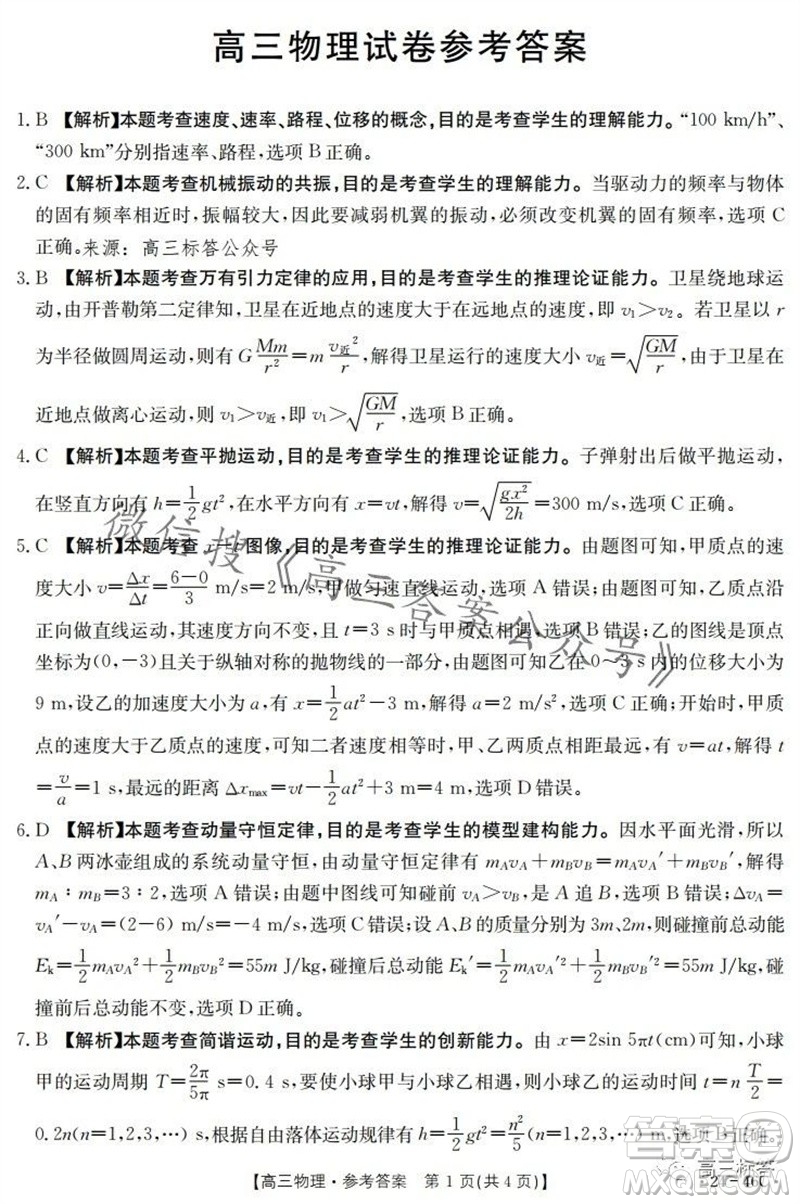 高三物理试卷参考答案
1. B 【解析】本题考查速度、速率、路程、位移的概念,目的是考查学生的理解能力。“100 km/h”、
“300 km”分别指速率、路程,选项 B 正确。
2. C 【解析】本题考查机械振动的共振,目的是考查学生的理解能力。当驱动力的频率与物体
的固有频率相近时,振幅较大,因此要减弱机翼的振动,必须改变机翼的固有频率,选项 C
正确。来源:高三标答公众号
3. B 【解析】本题考查万有引力定律的应用,目的是考查学生的推理论证能力。卫星绕地球运
动,由开普勒第二定律知,卫星在近地点的速度大于在远地点的速度,即 v₁>v₂。若卫星以 r
为半径做圆周运动,则有 G Mm/r² = m v近²/r,解得卫星运行的速度大小 v近=√(GM/r),由于卫星在
近地点做离心运动,则 v₁>v近,即 v₁>√(GM/r),选项 B 正确。
4. C 【解析】本题考查平抛运动,目的是考查学生的推理论证能力。子弹射出后做平抛运动,
在竖直方向有 h=1/2 gt²,在水平方向有 x=vt,解得 v=√(gx²/2h)=300 m/s,选项 C 正确。
5. C 【解析】本题考查 图像,目的是考查学生的推理论证能力。由题图可知,甲质点的速
度大小 v=Δx/Δt=(6-0)/3 m/s=2 m/s,甲做匀速直线运动,选项 A 错误;由题图可知,乙质点沿
正向做直线运动,其速度方向不变,且 t=3 s 时与甲质点相遇,选项 B 错误;乙的图线是顶点
坐标为(0,-3)且关于纵轴对称的抛物线的一部分,由题图可知乙在 0~3 s 内的位移大小为
9 m,设乙的加速度大小为 a,有 x=1/2 at²-3 m,解得 a=2 m/s²,选项 C 正确;开始时,甲质
点的速度大于乙质点的速度,可知二者速度相等时,甲、乙两质点相距最远,有 v=at,解得
t=v/a=1 s,最远的距离 Δxmax=vt-1/2 at²+3 m,选项 D 错误。
6. D 【解析】本题考查动量守恒定律,目的是考查学生的模型建构能力。因水平面光滑,所以
A、B 两冰壶组成的系统动量守恒,由动量守恒定律有 mAvA+mBvB=mAvA′+mBvB′,解得
mA∶mB=3∶2,选项 A 错误;由题中图线可知碰前 vA>vB,是 A 追 B,选项 B 错误;ΔvA=
vA′-vA=(2-6) m/s=-4 m/s,选项 C 错误;设 A、B 的质量分别为 3m、2m,则碰撞前总动能
Ek=1/2 mAvA²+1/2 mBvB²=55m J/kg,碰撞后总动能 Ek′=1/2 mAvA′²+1/2 mBvB′²=55m J/kg,碰
撞前后总动能不变,选项 D 正确。
7. B 【解析】本题考查简谐运动,目的是考查学生的创新能力。由 x=2sin 5πt(cm)可知,小球
甲的运动周期 T=2π/5π s=0.4 s,要使小球甲与小球乙相遇,则小球乙的运动时间 t=n T/2=
0.2n(n=1,2,3,…) s,根据自由落体运动规律有 h=1/2 gt²=n²/5(n=1,2,3,…) m,选项 B 正确。
【高三物理·参考答案 第 1 页(共 4 页)】
微信搜《高三答案公众号》
高三标答